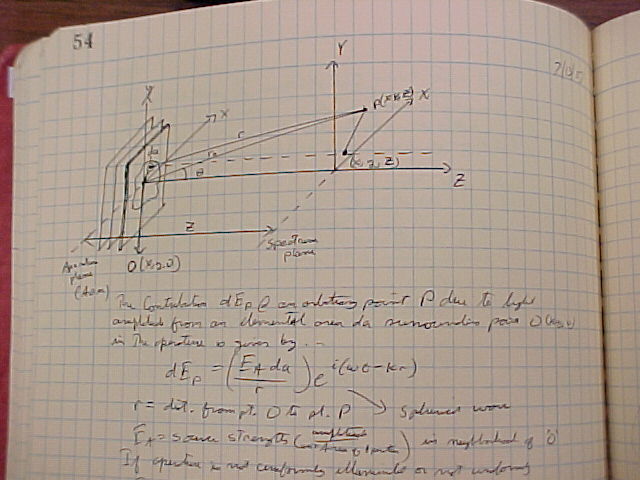 54
Y
P(X,Y,Z)
X
Y
X
r
r₀
θ
(x, y, Z)
Z
Z
Spectrum
plane
Aperture
plane
O(x,y,0)
The Contribution dE_P @ an arbitrary point P due to light
amplitude from an elemental area da surrounding point O(x,y,0)
in the aperture is given by
dE_P = (E_A da / r) e^i(ωt - kr)
r = dist. from pt. O to pt. P → spherical wave
E_A = source strength (amplitude / unit Area of aperture) in neighborhood of 'O'
If aperture is not uniformly illuminated or not uniformly